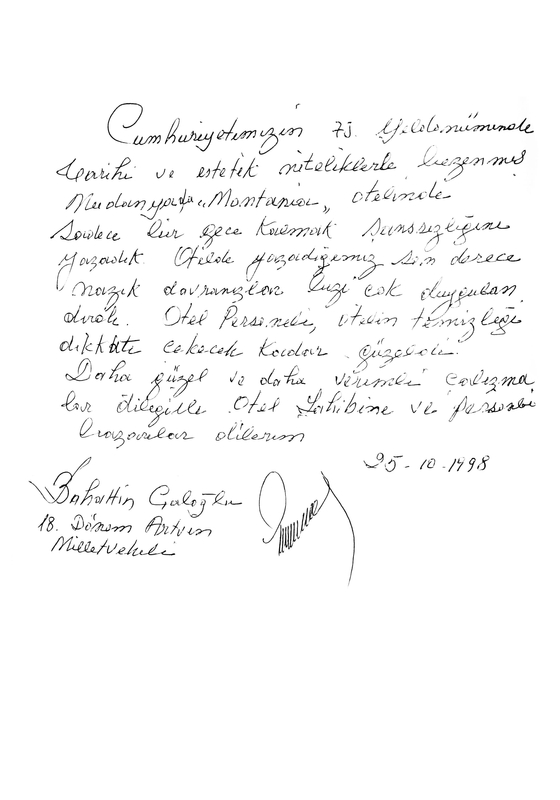 Cumhuriyetimizin 75. Yıldönümünde
tarihi ve estetik niteliklerle bezenmiş
Mudanyada "Montania" otelinde
Sadece bir gece Kalmak şanssızlığını
yaşadık. Otelde yaşadığımız son derece
nazik davranışlar bizi çok duygulan
dırdı. Otel Personeli, otelin temizliği
dikkati çekecek kadar güzeldi.
Daha güzel ve daha verimli çalışma
lar dileğiile Otel Sahibine ve personeli
başarılar dilerim
25-10-1998
Bahattin
18. Dönem Artvin
Milletvekili